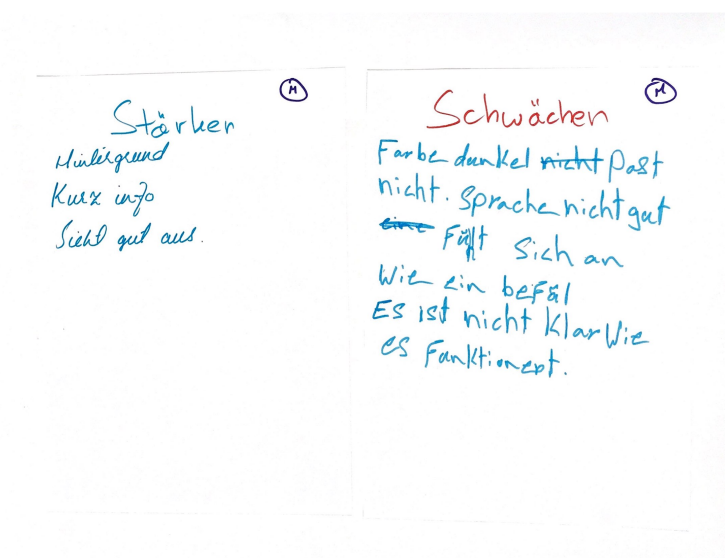 M
Stärken
Hintergrund
Kurz info
Sieht gut aus.
M
Schwächen
Farbe dunkel nicht past
nicht. Sprache nicht gut
eine Fült sich an
Wie ein befäl
Es ist nicht klar Wie
es Funktionert.